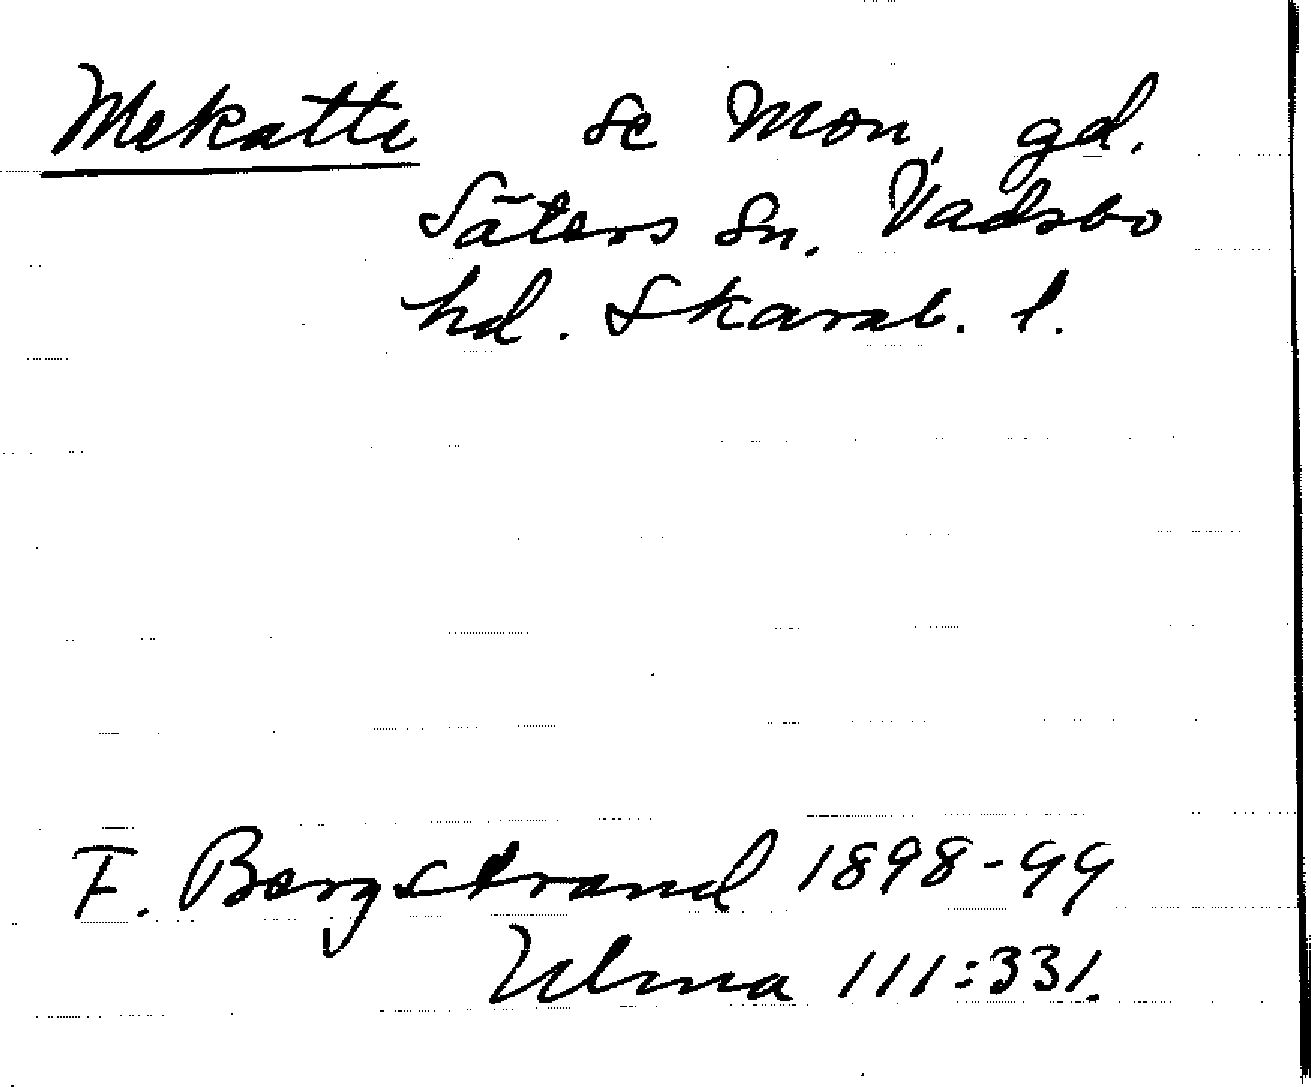 Mekatte se Mon, gd.
Säters Sn. Vadsbo
hd. Skarab. l.
F. Bergstrand 1898-99
Ulma 111:331.